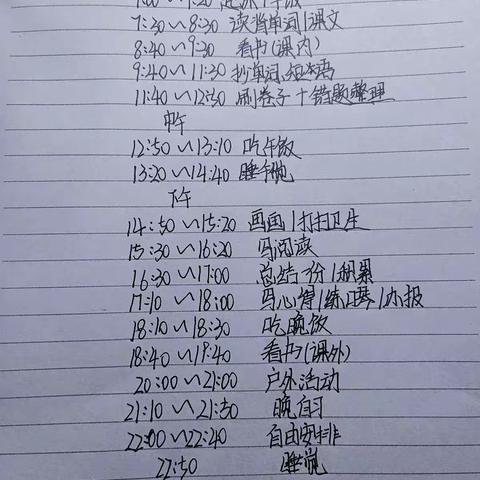 7:20 起床|早饭
7:30~8:30 读背单词|课文
8:40~9:30 看书(课内)
9:40~11:30 抄单词,短语
11:40~12:30 刷卷子+错题整理
中午
12:50~13:10 吃午饭
13:20~14:40 睡午觉
下午
14:50~15:20 画画|打扫卫生
15:30~16:20 写阅读
16:30~17:00 总结 份|积累
17:10~18:00 写心得|练口琴|办报
18:10~18:30 吃晚饭
18:40~19:40 看书(课外)
20:00~21:00 户外活动
21:10~21:50 晚自习
22:00~22:40 自由安排
22:50 睡觉